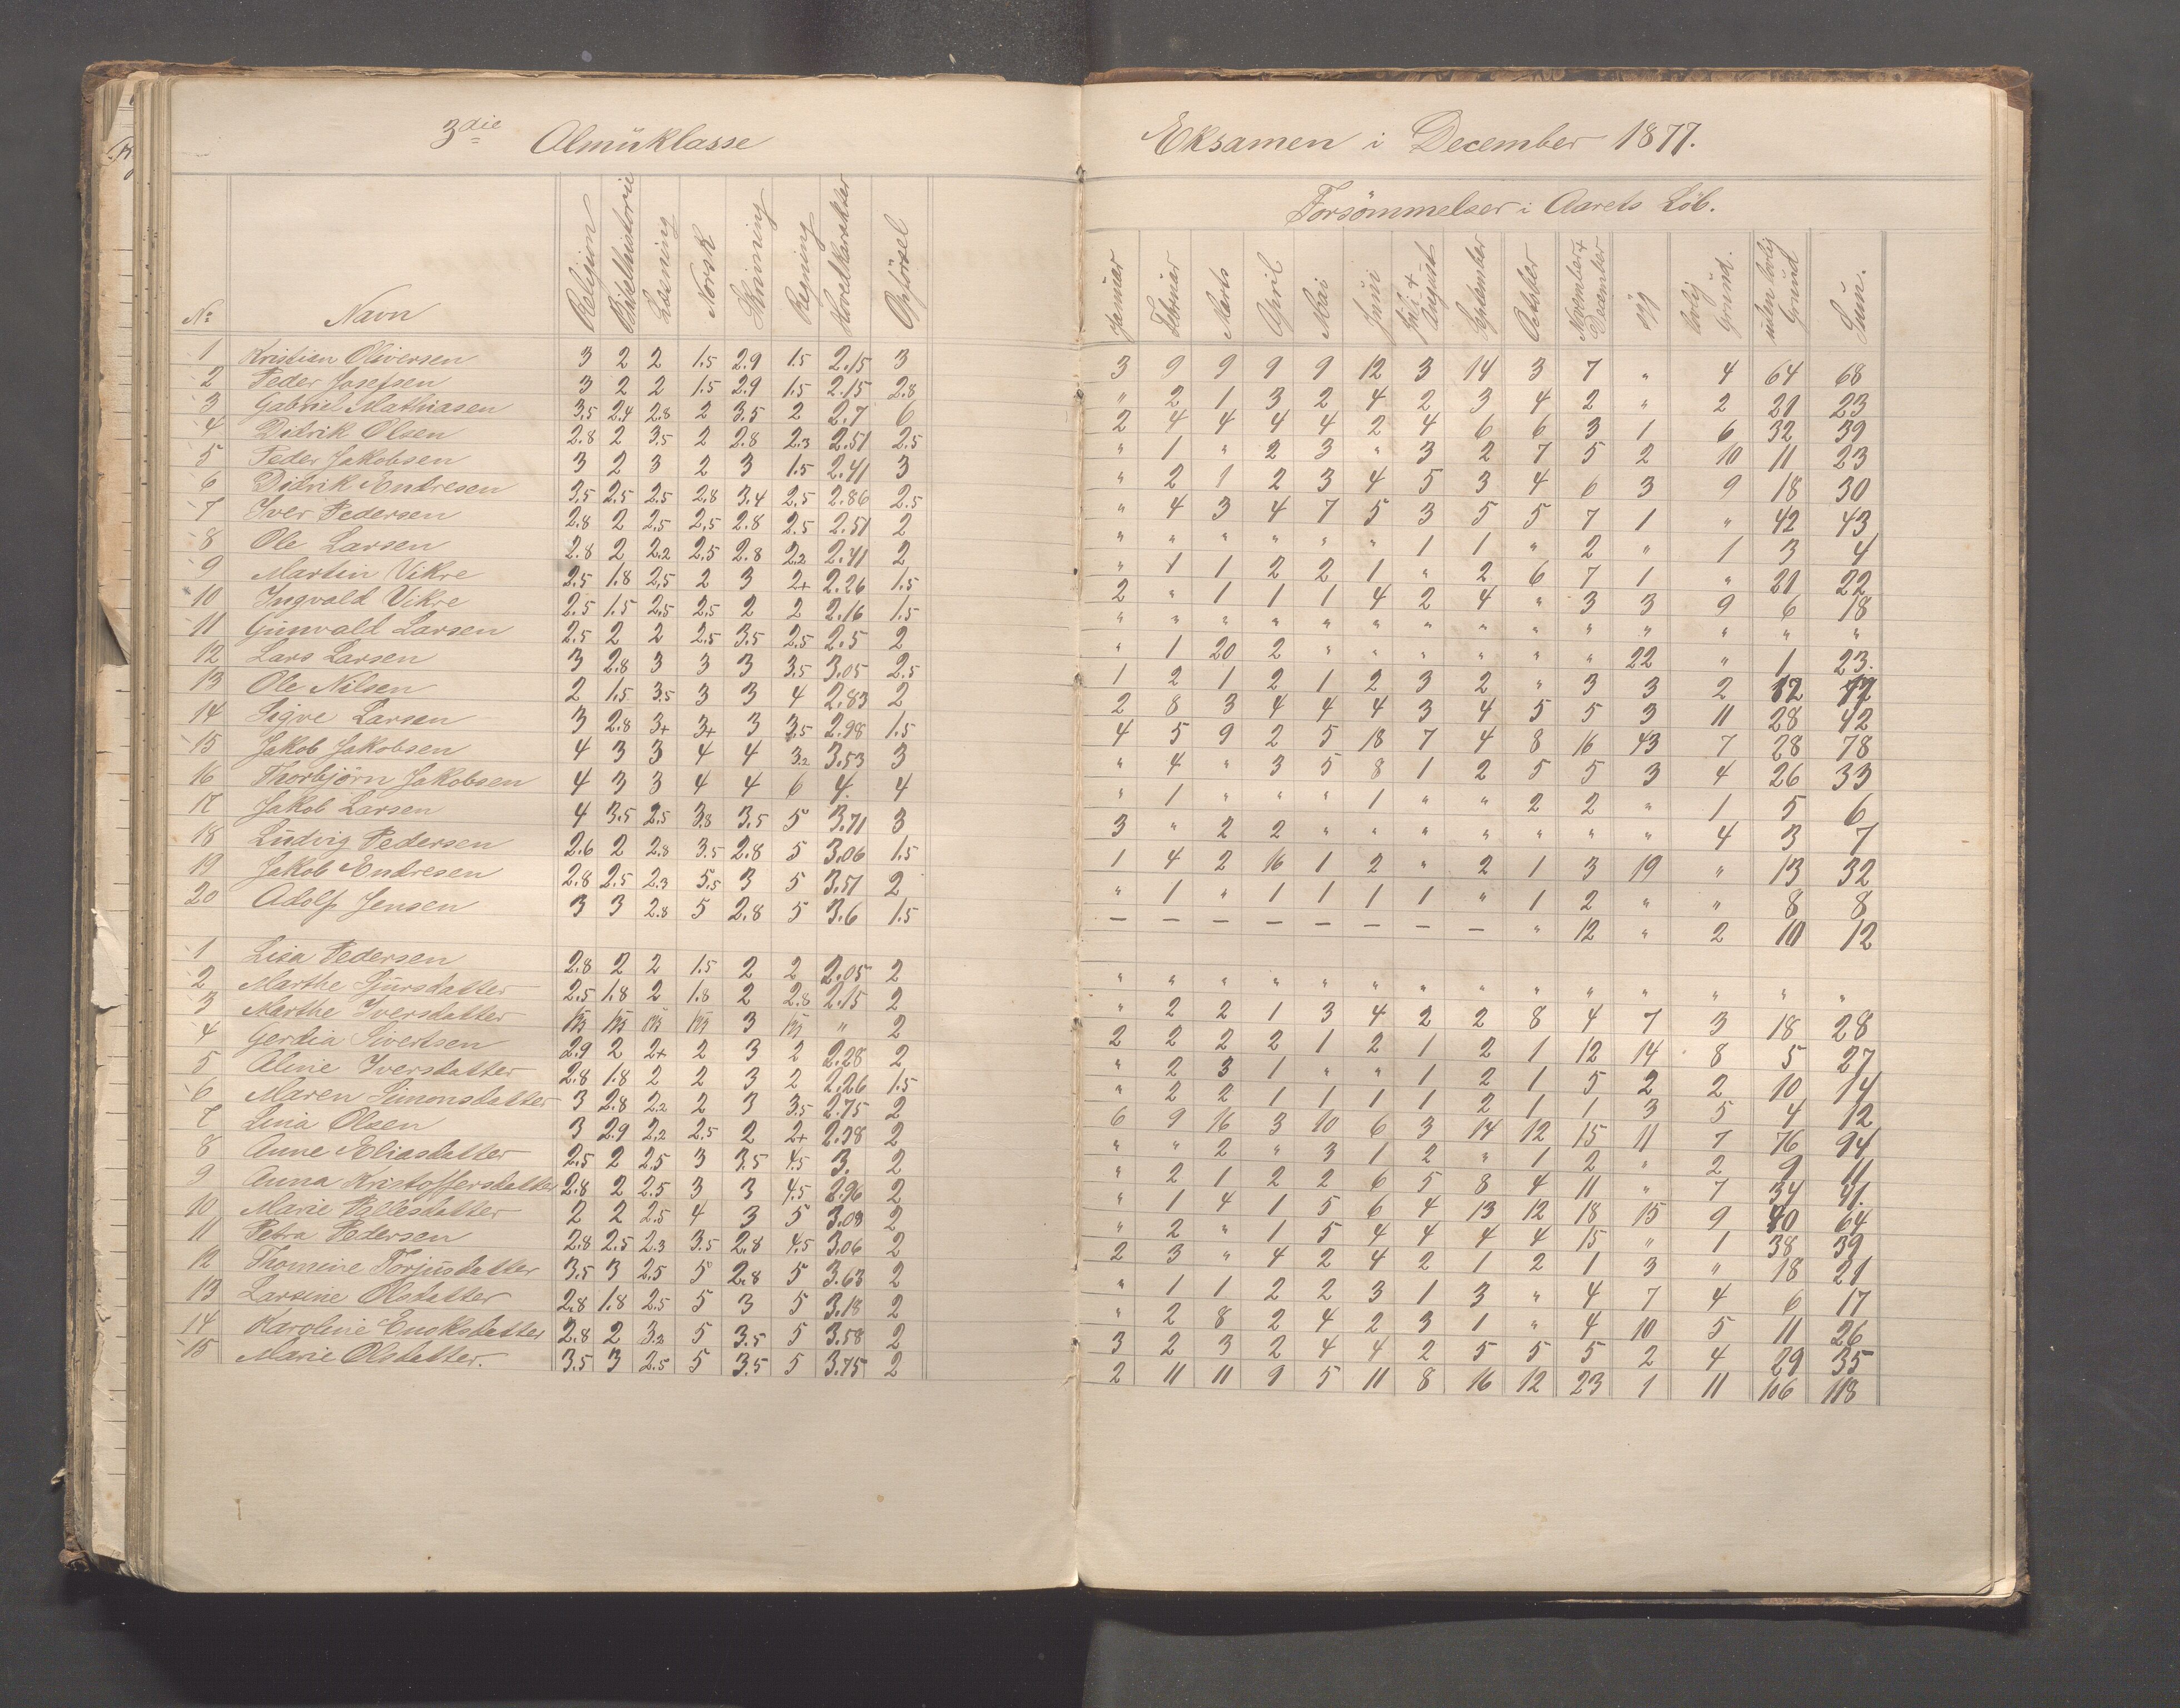 3die Almüklasse
No Navn Religion Bibelhistorie Læsning Norsk Skrivning Regning Hovedkarakter Opförsel
1 Kristian Oliversen 3 2 2 1.5 2.9 1.5 2.15 3
2 Peder Josefsen 3 2 2 1.5 2.9 1.5 2.15 2.8
3 Gabriel Mathiasen 3.5 2.4 2.8 2 3.5 2 2.7 6
4 Didrik Olsen 2.8 2 3.5 2 2.8 2.3 2.51 2.5
5 Peder Jakobsen 3 2 3 2 3 1.5 2.41 3
6 Didrik Endresen 3.5 2.5 2.5 2.8 3.4 2.5 2.86 2.5
7 Iver Pedersen 2.8 2 2.5 2.5 2.8 2.5 2.51 2
8 Ole Larsen 2.8 2 2.2 2.5 2.8 2.2 2.41 2
9 Martin Vikre 2.5 1.8 2.5 2 3 2+ 2.26 1.5
10 Ingvald Vikre 2.5 1.5 2.5 2.5 2 2 2.16 1.5
11 Gunvald Larsen 2.5 2 2 2.5 3.5 2.5 2.5 2
12 Lars Larsen 3 2.8 3 3 3 3.5 3.05 2.5
13 Ole Nilsen 2 1.5 3.5 3 3 4 2.83 2
14 Sigve Larsen 3 2.8 3+ 3+ 3 3.5 2.98 1.5
15 Jakob Jakobsen 4 3 3 4 4 3.2 3.53 3
16 Thorbjörn Jakobsen 4 3 3 4 4 6 4. 4
17 Jakob Larsen 4 3.5 2.5 3.8 3.5 5 3.71 3
18 Ludvig Pedersen 2.6 2 2.8 3.5 2.8 5 3.06 1.5
19 Jakob Endresen 2.8 2.5 2.3 5.5 3 5 3.51 2
20 Adolf Jensen 3 3 2.8 5 2.8 5 3.6 1.5
1 Lisa Pedersen 2.8 2 2 1.5 2 2 2.05 2
2 Marthe Sjursdatter 2.5 1.8 2 1.8 2 2.8 2.15 2
3 Marthe Iversdatter 3 " 2
4 Gerdia Sivertsen 2.9 2 2+ 2 3 2 2.28 2
5 Aline Iversdatter 2.8 1.8 2 2 3 2 2.26 1.5
6 Maren Simonsdatter 3 2.8 2.2 2 3 3.5 2.75 2
7 Lina Olsen 3 2.9 2.2 2.5 2 2+ 2.38 2
8 Anne Eliasdatter 2.5 2 2.5 3 3.5 4.5 3. 2
9 Anna Kristoffersdatter 2.8 2 2.5 3 3 4.5 2.96 2
10 Marie Pallesdatter 2 2 2.5 4 3 5 3.08 2
11 Petra Pedersen 2.8 2.5 2.3 3.5 2.8 4.5 3.06 2
12 Thomine Torjusdatter 3.5 3 2.5 5 2.8 5 3.63 2
13 Larsine Olsdatter 2.8 1.8 2.5 5 3 5 3.18 2
14 Karoline Enoksdatter 2.8 2 3.2 5 3.5 5 3.58 2
15 Marie Olsdatter. 3.5 3 2.5 5 3.5 5 3.75 2
Eksamen i December 1877.
Forsömmelser i Aarets Löb.
Januar Februar Marts April Mai Juni Juli + August September October November + December syg lovlig Grund. uden lovlig Grund Sum.
3 9 9 9 9 12 3 14 3 7 " 4 64 68
" 2 1 3 2 4 2 3 4 2 " 2 21 23
2 4 4 4 4 2 4 6 6 3 1 6 32 39
" 1 " 2 3 " 3 2 7 5 2 10 11 23
" 2 1 2 3 4 5 3 4 6 3 9 18 30
" 4 3 4 7 5 3 5 5 7 1 " 42 43
" " " " " " 1 1 " 2 " 1 3 4
" 1 1 2 2 1 " 2 6 7 1 " 21 22
2 " 1 1 1 4 2 4 " 3 3 9 6 18
" " " " " " " " " " " " " "
" 1 20 2 " " " " " " 22 " 1 23.
1 2 1 2 1 2 3 2 " 3 3 2 12 17
2 8 3 4 4 4 3 4 5 5 3 11 28 42
4 5 9 2 5 18 7 4 8 16 43 7 28 78
" 4 " 3 5 8 1 2 5 5 3 4 26 33
" 1 " " " 1 " " 2 2 " 1 5 6
3 " 2 2 " " " " " " " 4 3 7
1 4 2 16 1 2 " 2 1 3 19 " 13 32
" 1 " 1 1 1 1 " 1 2 " " 8 8
– – – – – – – – " 12 " 2 10 12
" " " " " " " " " " " " " "
" 2 2 1 3 4 2 2 8 4 7 3 18 28
2 2 2 2 1 2 1 2 1 12 14 8 5 27
" 2 3 1 " " 1 2 1 5 2 2 10 14
" 2 2 1 1 1 1 2 1 1 3 5 4 12
6 9 16 3 10 6 3 14 12 15 11 7 76 94
" " 2 " 3 1 2 " 1 2 " 2 9 11
" 2 1 2 2 6 5 8 4 11 " 7 34 41.
" 1 4 1 5 6 4 13 12 18 15 9 40 64
" 2 " 1 5 4 4 4 4 15 " 1 38 39
2 3 " 4 2 4 2 1 2 1 3 " 18 21
" 1 1 2 2 3 1 3 " 4 7 4 6 17
" 2 8 2 4 2 3 1 " 4 10 5 11 26
3 2 3 2 4 4 2 5 5 5 2 4 29 35
2 11 11 9 5 11 8 16 12 23 1 11 106 118